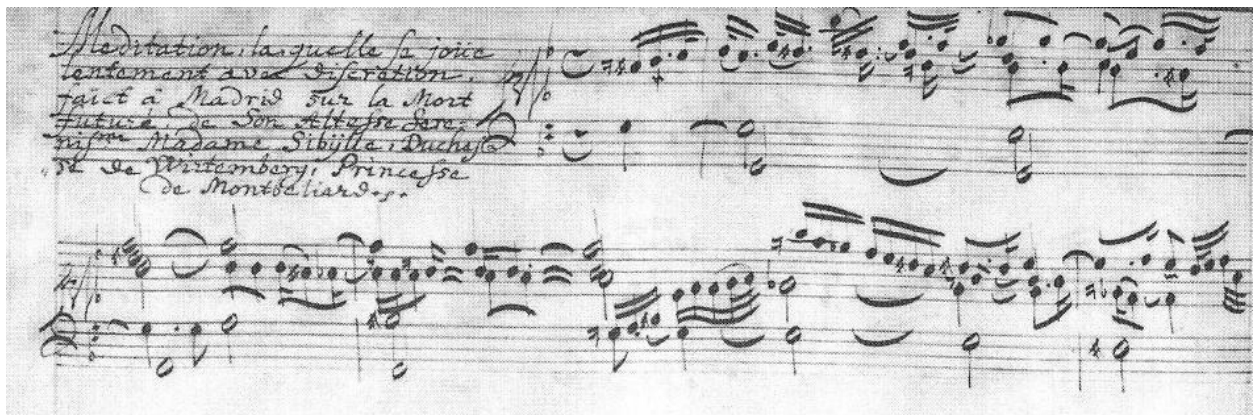 Meditation, la quelle se joüe
lentement avec Discretion.
faict à Madrid sur la Mort
future de Son Altesse Sere-
nis.me Madame Sibÿlle, Duches
se de Wirtemberg, Princesse
de Montbeliard.